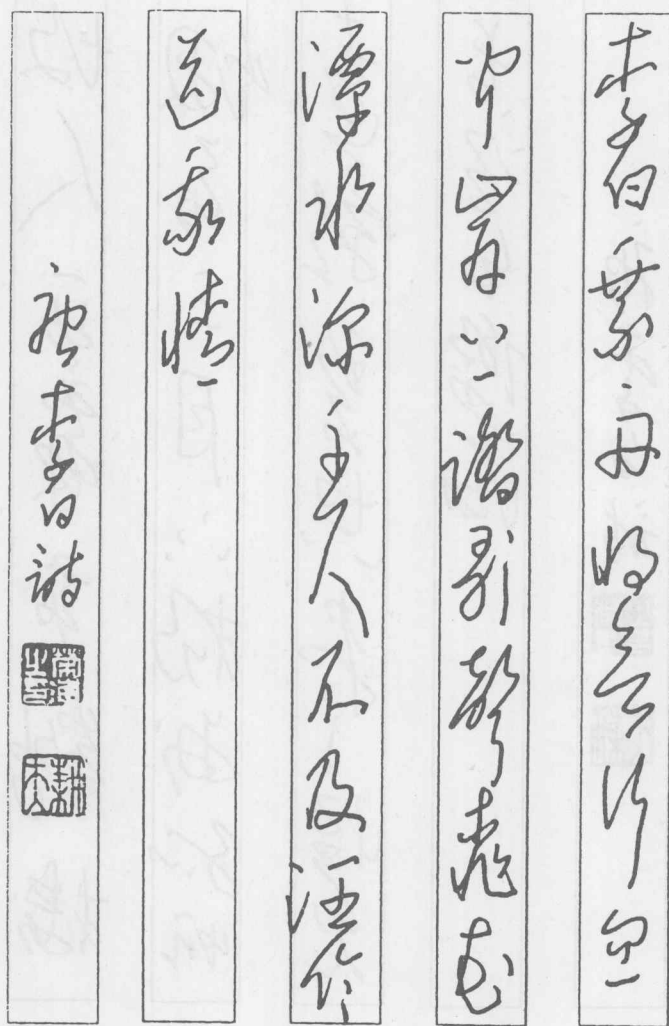 李白乘舟将欲行忽
闻岸上踏歌声桃花
潭水深千尺不及汪伦
送我情
唐李白诗